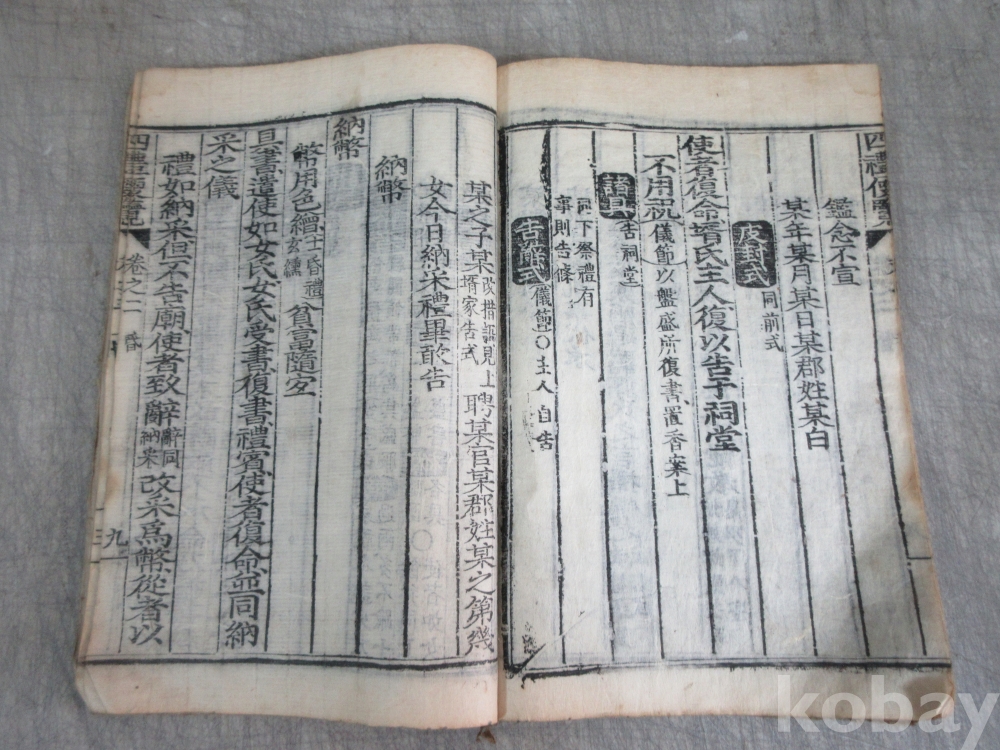 四禮便覽
鑑念不宣
某年某月某日某郡姓某白
皮封式 同前式
使者復命壻氏主人復以告于祠堂
不用祝 儀節 以盤盛所復書置香案上
諸具 告祠堂
祠下祭禮有
事則告條
告辭式 儀節○主人自告
某之子某 改措語見上
壻家告式 聘某官某郡姓某之第幾
女今日納采禮畢敢告
納幣
納幣
幣用色繒 士昏禮
玄纁 貧富隨宜
具書遣使如女氏女氏受書復書禮賓使者復命並同納
采之儀
禮如納采但不告廟使者致辭 辭同
納采 改采爲幣從者以
四禮便覽 卷之二 昏 九
kobay